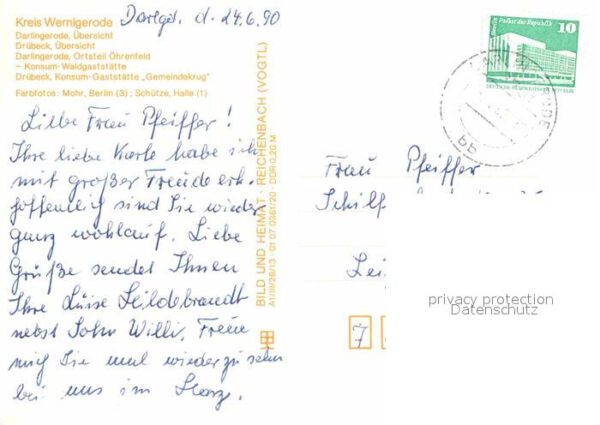 Kreis Wernigerode
Darlingerode, Übersicht
Drübeck, Übersicht
Darlingerode, Ortsteil Öhrenfeld
– Konsum-Waldgaststätte
Drübeck, Konsum-Gaststätte „Gemeindekrug"
Farbfotos: Mohr, Berlin (3) ; Schütze, Halle (1)
d. 24.6.90
Liebe Frau Pfeiffer!
Ihre liebe Karte habe ich
mit großer Freude erh.
hoffentlich sind Sie wieder
ganz wohlauf. Liebe
Grüße sendet Ihnen
Ihre Luise Hildebrandt
nebst Sohn Willi. Freue
mich Sie mal wieder zu sehn
bei uns im Harz.
BILD UND HEIMAT · REICHENBACH (VOGTL)
A1/III/26/13 · 01 07 0361/20 · DDR 0,20 M
Palast der Republik
Berlin
10
66
Frau Pfeiffer
Schilf
Lei
7
privacy protection
Datenschutz